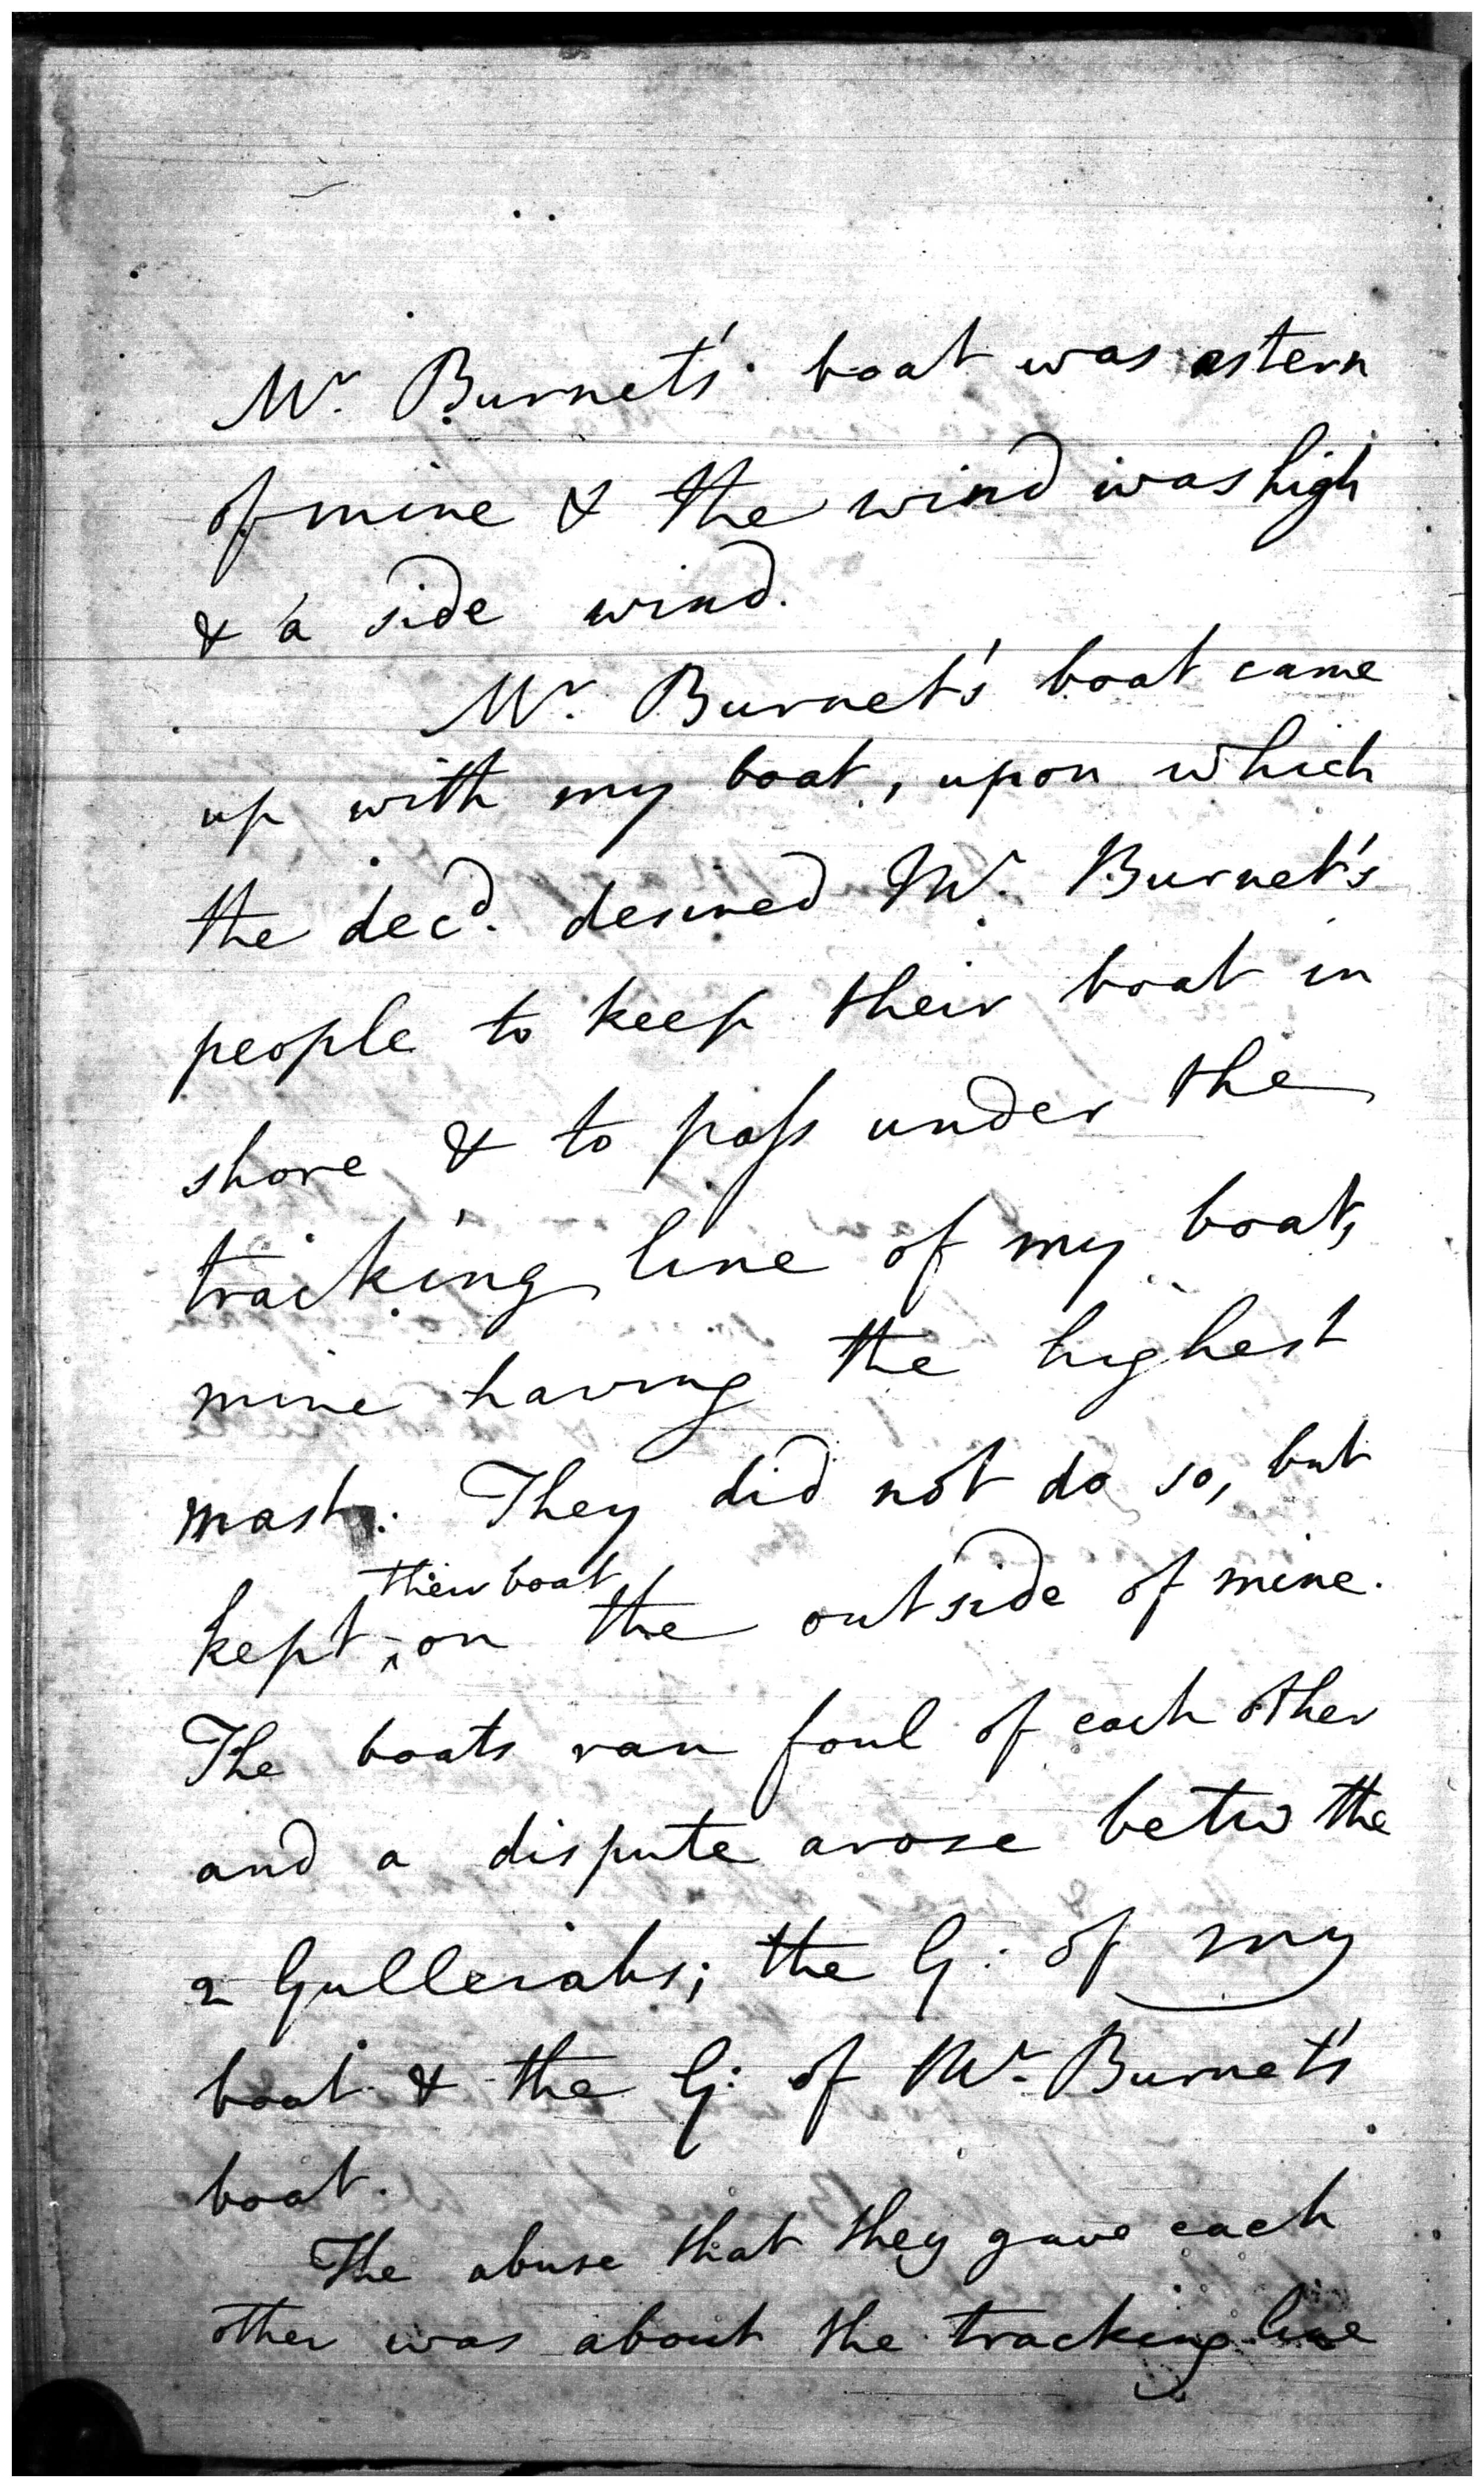 Mr. Burnet's boat was astern
of mine & the wind was high
& a side wind.
Mr. Burnet's boat came
up with my boat, upon which
the decd. desired Mr. Burnet's
people to keep their boat in
shore & to pass under the
tracking line of my boat,
mine having the highest
mast. They did not do so, but
their boat
kept ^ on the outside of mine.
The boats ran foul of each other
and a dispute arose betw the
2 Gulleeiahs; the G: of my
boat & the G: of Mr. Burnet's
boat.
The abuse that they gave each
other was about the tracking line